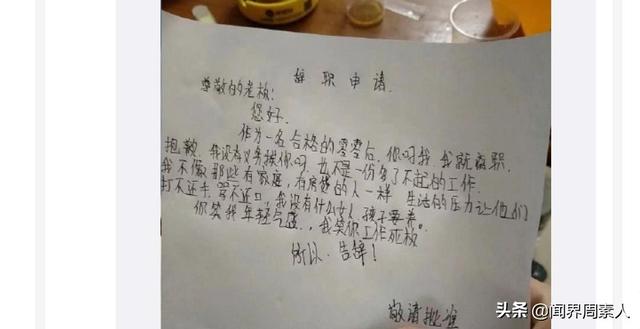 辞职申请
尊敬的老板：
您好.
作为一名合格的零零后，你吵我我就离职.
抱歉.我没有义务挨你吵.也不是一份多了不起的工作.
我不像那些有家庭，有房贷的人一样 生活的压力让他们
打不还手.骂不还口，我没有什么女人孩子要养。
你笑我年轻气盛，我笑你工作死板
所以.告辞！
敬请批准
头条 @闻界周素人